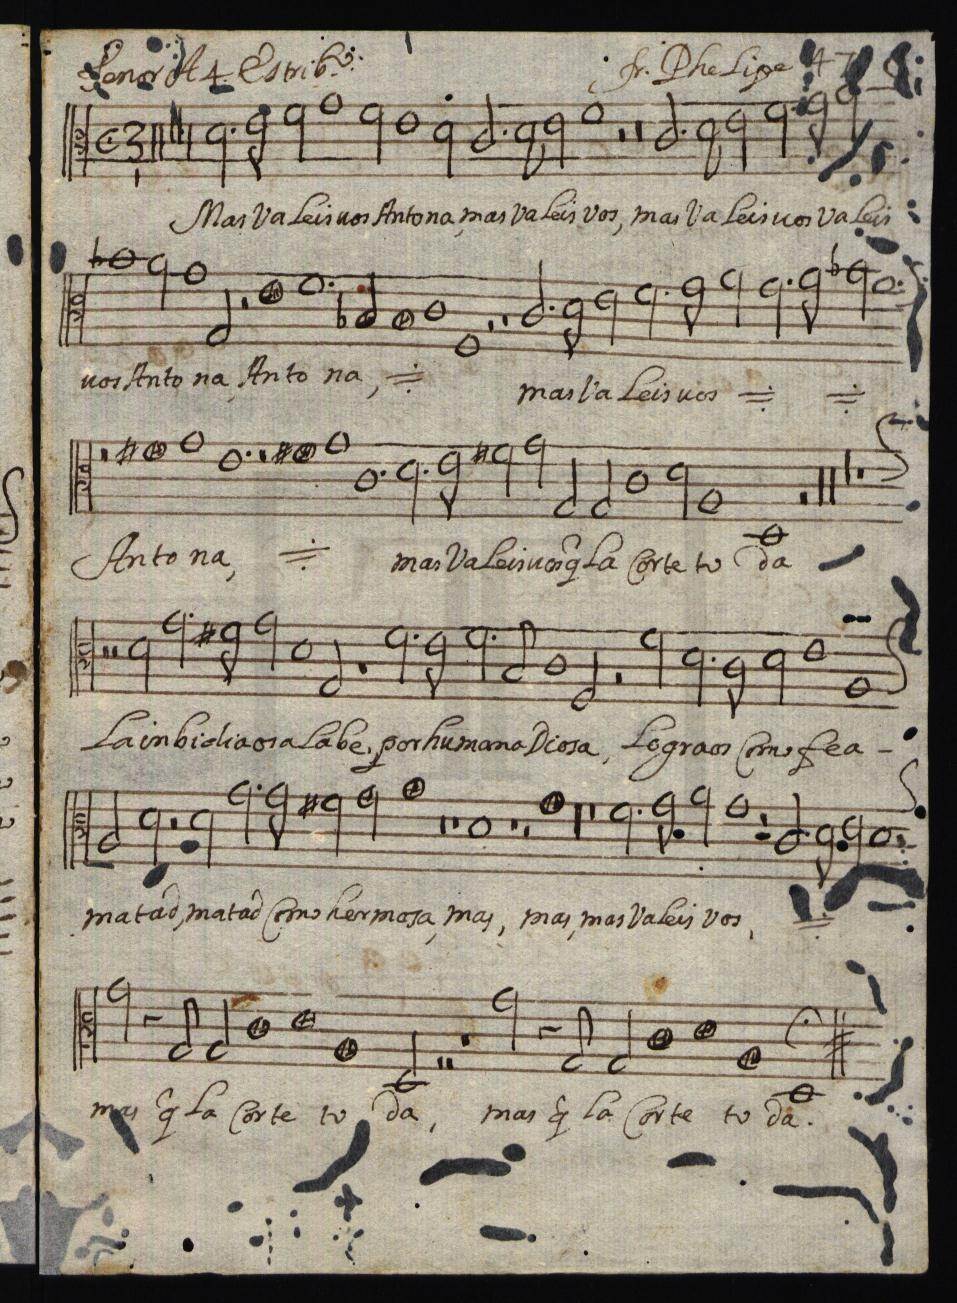 Tenor A 4 Estribo. fr. Phelipe 47
Mas Valeis vos Antona, mas Valeis vos, mas Valeis vos Valeis
vos Antona, Antona, mas Valeis vos
Antona, mas Valeis vos q̃ La Corte toda
La inbidiaosa Labe, por humana Diosa, Lograos Como fea -
matad, matad Como hermosa, mas, mas, mas Valeis vos,
mas q̃ La Corte toda, mas q̃ la Corte toda.